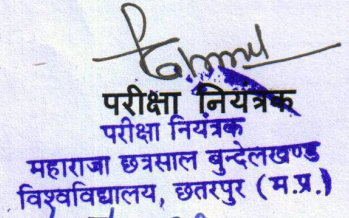 परीक्षा नियंत्रक
परीक्षा नियंत्रक
महाराजा छत्रसाल बुन्देलखण्ड
विश्वविद्यालय, छतरपुर (म.प्र.)